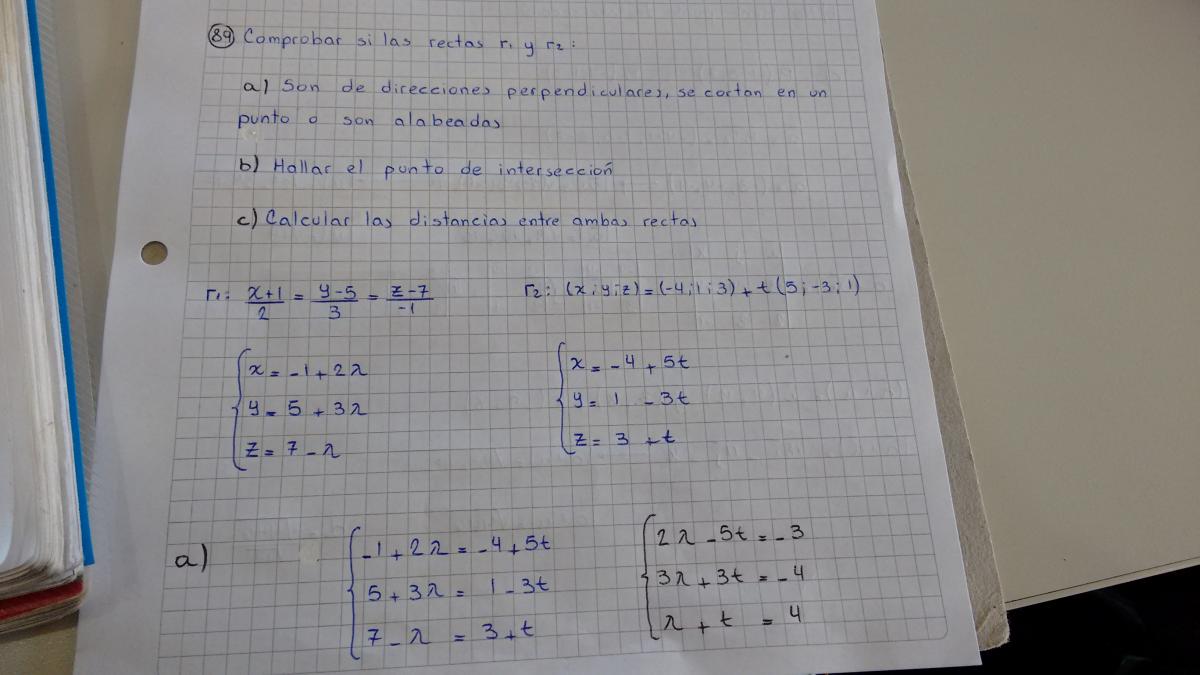 89 Comprobar si las rectas r₁ y r₂:
a) Son de direcciones perpendiculares, se cortan en un
punto o son alabeadas
b) Hallar el punto de intersección
c) Calcular las distancias entre ambas rectas
r₁: (x+1)/2 = (y-5)/3 = (z-7)/-1 r₂: (x;y;z)=(-4;1;3)+t(5;-3;1)
x=-1+2λ x=-4+5t
y=5+3λ y=1-3t
z=7-λ z=3+t
a) -1+2λ=-4+5t 2λ-5t=-3
5+3λ=1-3t 3λ+3t=-4
7-λ=3+t λ+t=4